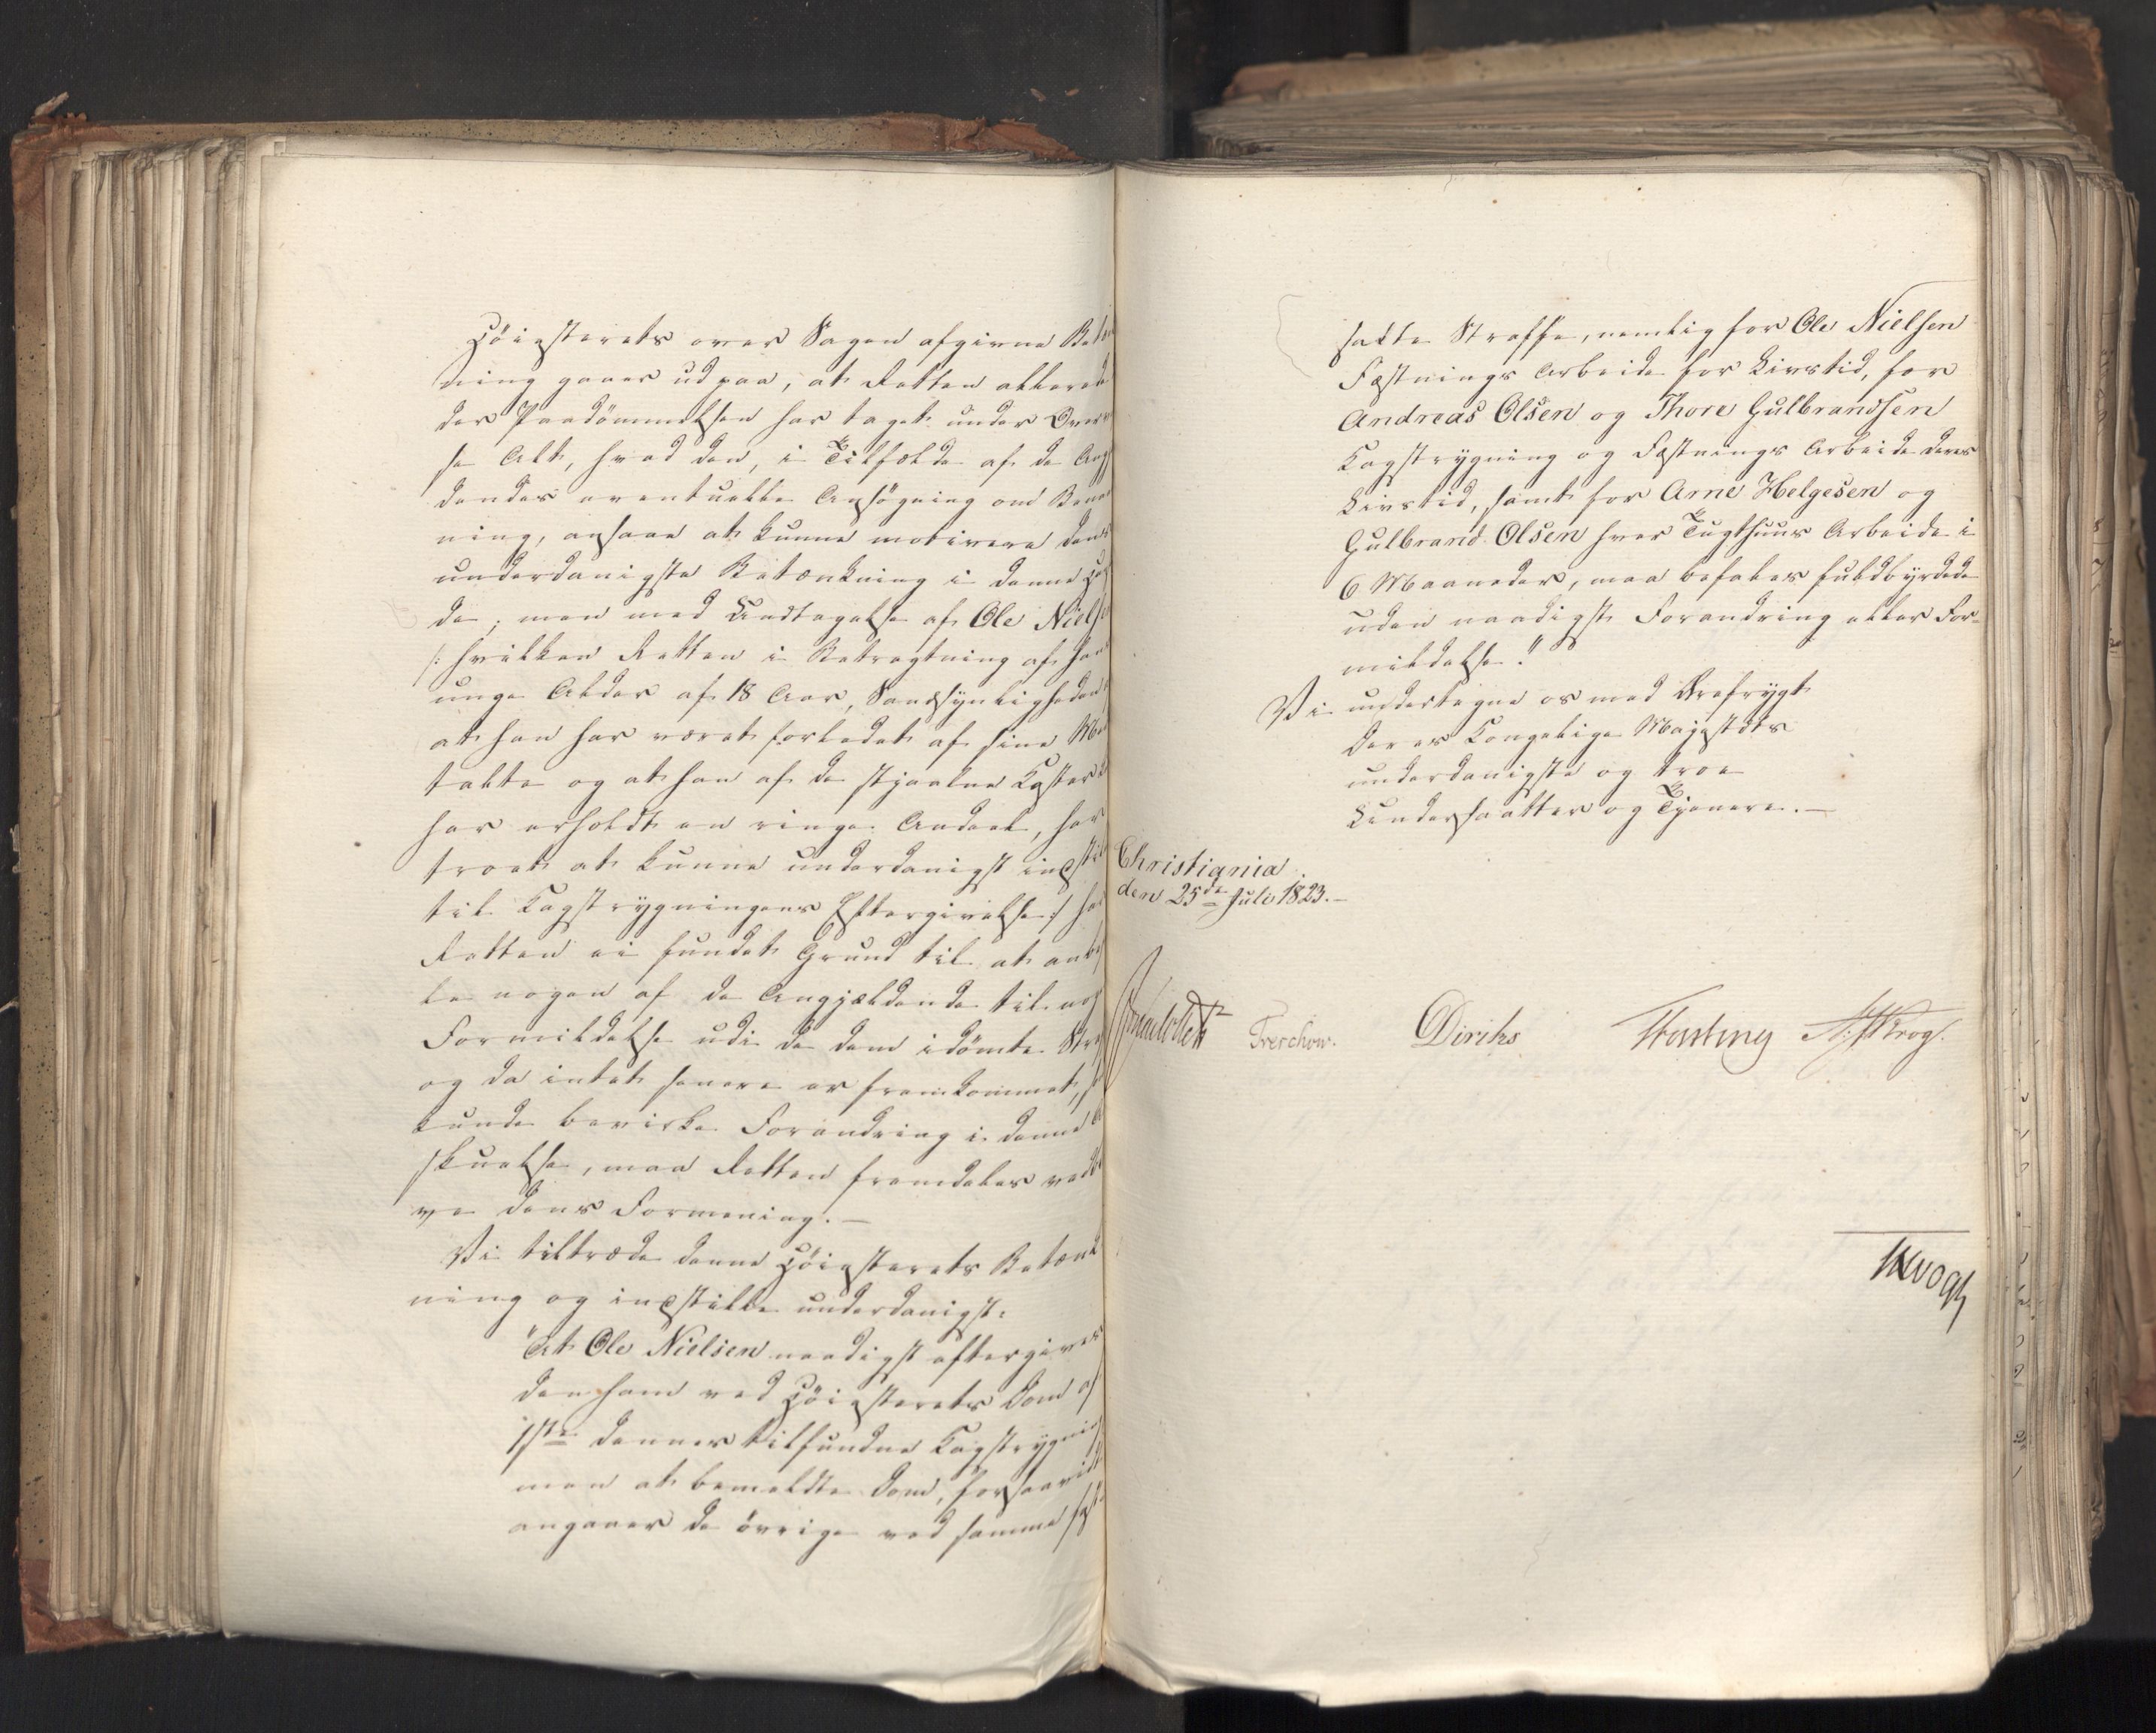 Höiesterets over Sagen afgivne Betæn
ning gaaer ud paa, at Retten allerede
der Paadömmelsen har taget under Overv
se Alt, hvad den, i Tilfælde af de Ang
dendes eventuelle Ansögning om Benaa
ning, ansaae at kunne motivere dens
underdanigste Betænkning i denne Hen
de; men med Undtagelse af Ole Nielse
/: hvilken Retten i Betragtning af hans
unge Alder af 18 Aar, Sandsynligheden
at han har været forledet af sine Med
talte og at han af de stjaalne Koster
har erholdt en ringe Andeel, har
troet at kunne underdanigst indstil
til Kagstrygningens Eftergivelse :/ har
Retten ei fundet Grund til at anbef
le nogen af de Angjældende til nog
Formildelse udi de dem idömte Stra
og da intet senere er fremkommet, s
kunde bevirke Forandring i denne A
skuelse, maa Retten fremdeles vedbl
ve dens Formening. —
Vi tiltræde denne Höiesterets Betænk
ning og indstille underdanigst:
"At Ole Nielsen naadigst eftergives
den ham ved Höiesterets Dom af
1ste dennes tilfundne Kagstrygning
men at bemeldte Dom, forsaavidt
angaaer de övrige ved samme fast
satte Straffe, nemlig for Ole Nielsen
Fæstnings Arbeide for Livstid, for
Andreas Olsen og Thore Gulbrandsen
Kagstrygning og Fæstnings Arbeide deres
Livstid, samt for Arne Helgesen og
Gulbrand Olsen hver Tugthuus Arbeide i
6 Maaneder, maa befales fuldbyrdede
uden naadigst Forandring eller For-
mildelse."
Vi undertegne os med Ærefrygt
Deres Kongelige Majestæts
underdanigste og troe
Undersaatter og Tjenere. —
Christiania
den 25de Juli 1823. —
Treschow. Diriks Fasting Krog.